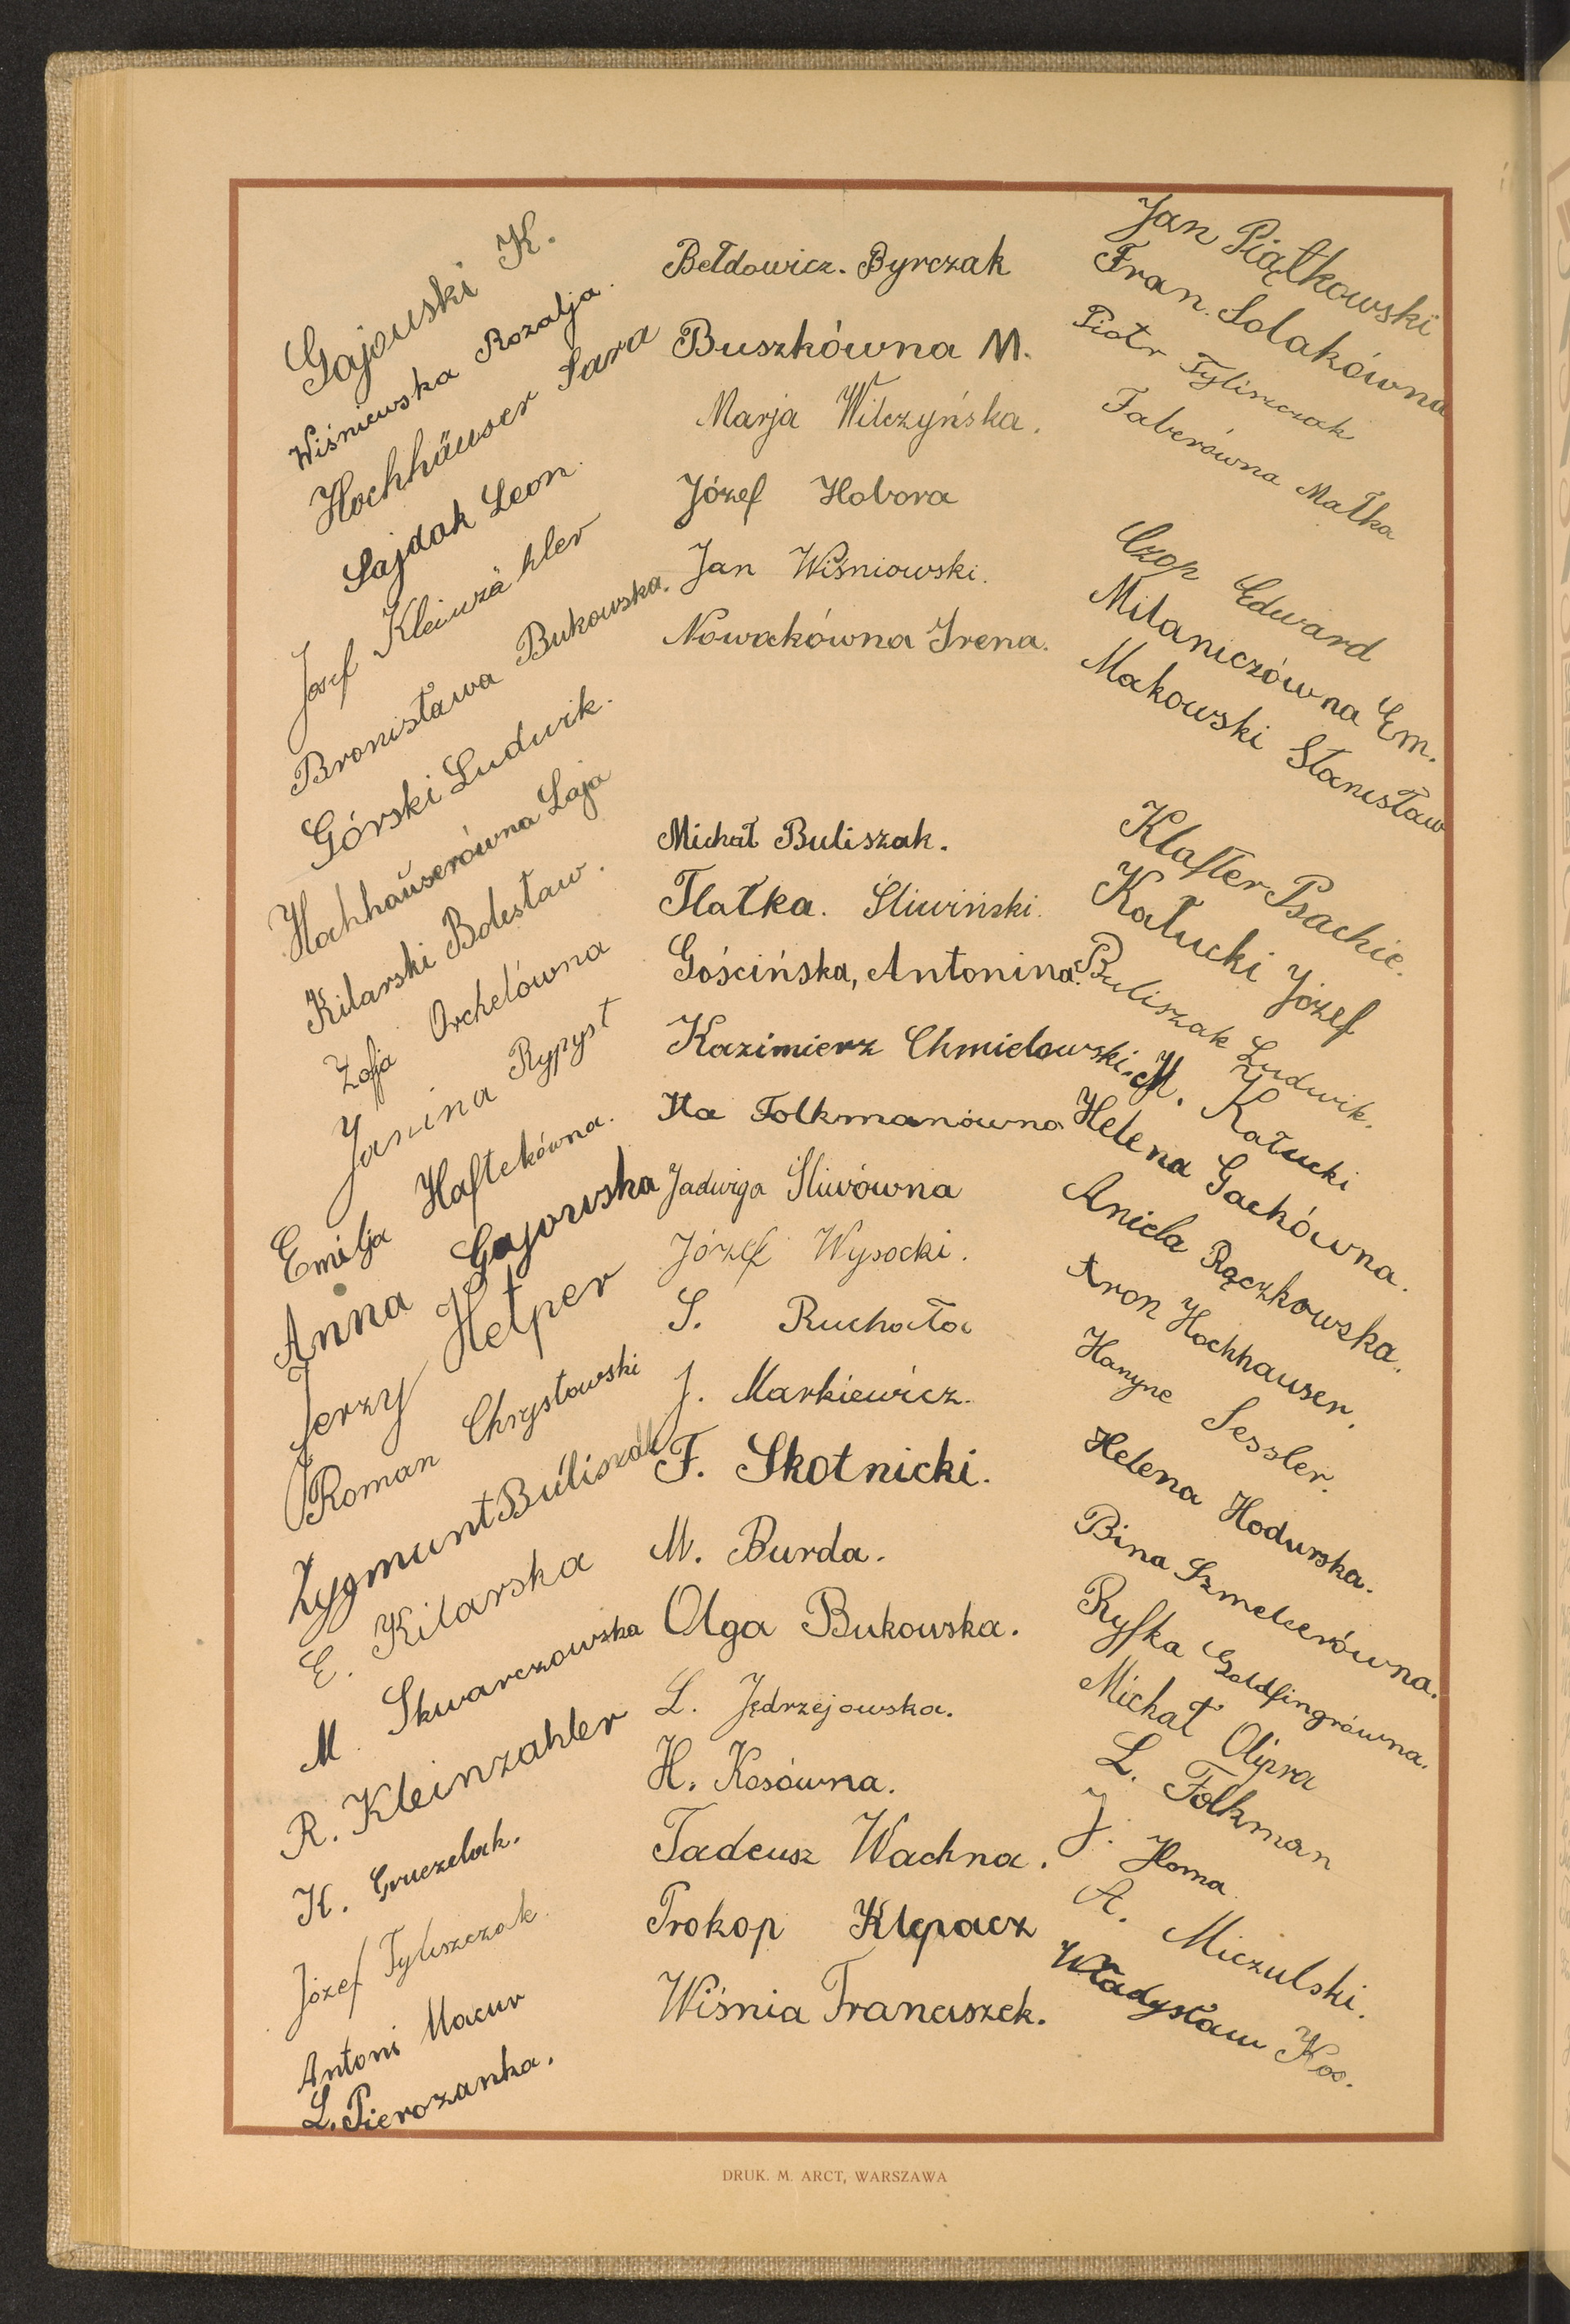 Gajowski K.
Wiśniewska Rozalja.
Hochhäuser Sara
Sajdak Leon.
Josef Kleinzähler
Bronisława Bukowska.
Górski Ludwik.
Hochhäuserówna Laja
Kilarski Bolesław.
Zofja Orchelówna
Janina Rypyst
Emilja Haftekówna.
Anna Gajowska
Jerzy Hetper
Roman Chrystowski
Zygmunt Buliszak
E. Kilarska
M. Skwarczowska
R. Kleinzahler
K. Gruczelak.
Józef Tyliszczak.
Antoni Macur
L. Pierozanka.
Bełdowicz. Byrczak
Buszkówna M.
Marja Wilczyńska.
Józef Hobora
Jan Wiśniowski.
Nowakówna Irena.
Michał Buliszak.
Tlałka. Śliwiński.
Gościńska, Antonina.
Kazimierz Chmielowski.
Ita Folkmanówna
Jadwiga Śliwówna
Józef Wysocki.
S. Ruchała
J. Markiewicz.
F. Skotnicki.
M. Burda.
Olga Bukowska.
L. Jędrzejowska.
H. Kosówna.
Tadeusz Wachna.
Prokop Klepacz
Wiśnia Franciszek.
Jan Piątkowski
Fran. Solakówna
Piotr Tyliszczak
Faberówna Małka
Czop Edward
Milaniczówna Em.
Makowski Stanisław
Klafter Psachie.
Kałucki Józef
Buliszak Ludwik.
M. Kałucki
Helena Gackówna.
Aniela Rączkowska.
Aron Hochhauser.
Hanyne Sessler.
Helena Hodurska.
Bina Szmelcerówna.
Ryfka Goldfingrówna.
Michał Olipra
L. Folkman
J. Homa
A. Miczulski.
Władysław Kos.
DRUK. M. ARCT, WARSZAWA